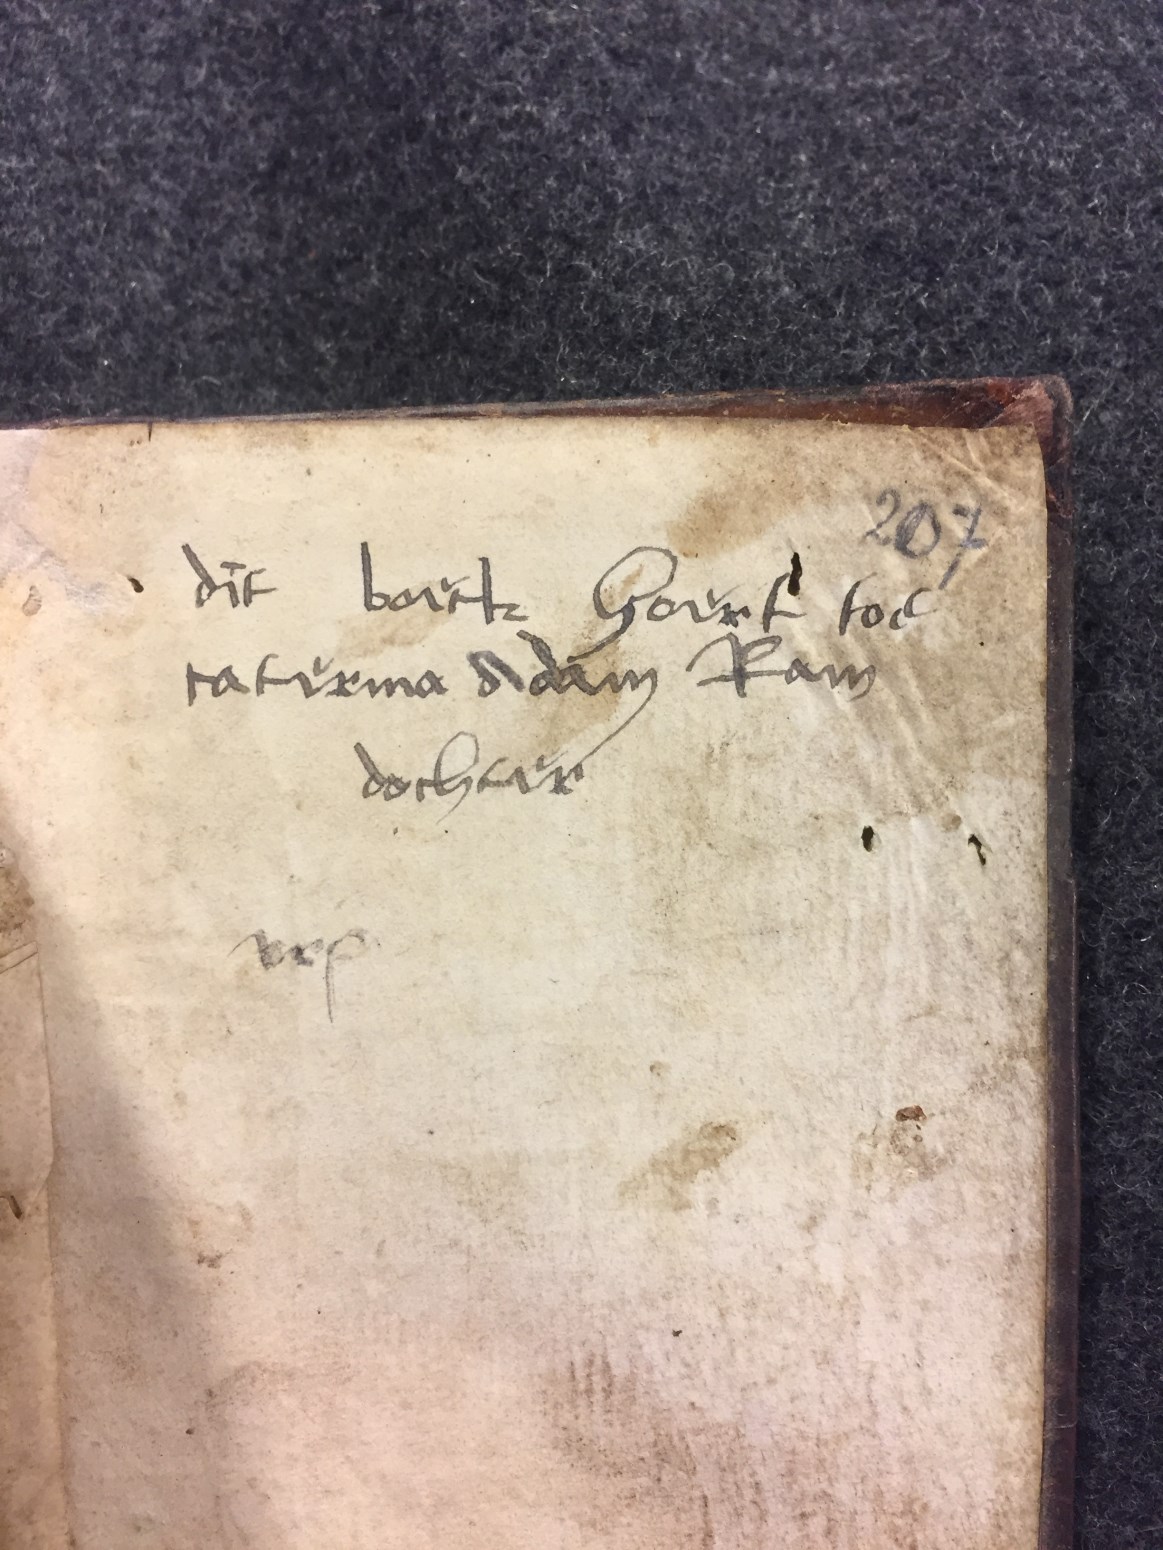 207
dit boick hoirt toe
caterina adam Ram
dochter